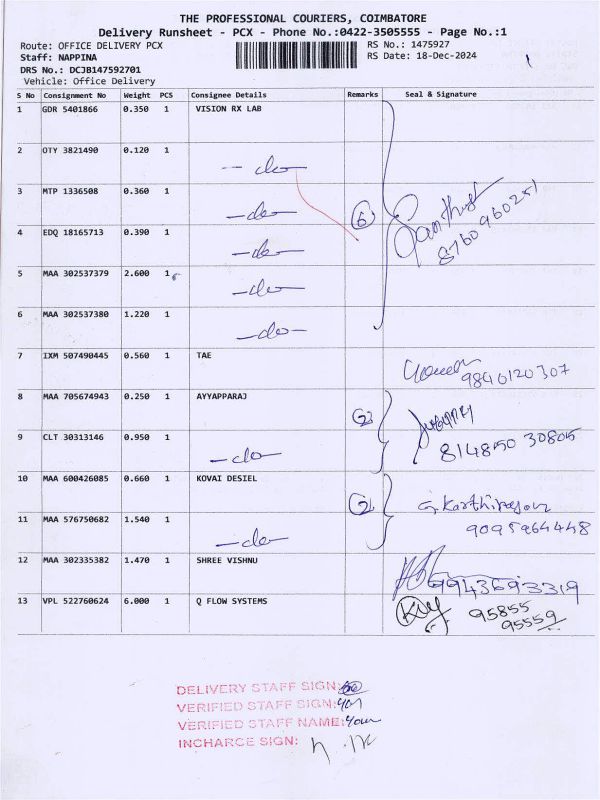 THE PROFESSIONAL COURIERS, COIMBATORE
Delivery Runsheet - PCX - Phone No.:0422-3505555 - Page No.:1
Route: OFFICE DELIVERY PCX RS No.: 1475927
Staff: NAPPINA RS Date: 18-Dec-2024
DRS No.: DCJB147592701
Vehicle: Office Delivery
S No Consignment No Weight PCS Consignee Details Remarks Seal & Signature
1 GDR 5401866 0.350 1 VISION RX LAB
2 OTY 3821490 0.120 1 -do-
3 MTP 1336508 0.360 1 -do- 6
4 EDQ 18165713 0.390 1 -do- 8760960251
5 MAA 302537379 2.600 1 -do-
6 MAA 302537380 1.220 1 -do-
7 IXM 507490445 0.560 1 TAE 9840120307
8 MAA 705674943 0.250 1 AYYAPPARAJ 2
9 CLT 30313146 0.950 1 -do- 814850 30805
10 MAA 600426085 0.660 1 KOVAI DESIEL 2
11 MAA 576750682 1.540 1 -do- 9095964448
12 MAA 302335382 1.470 1 SHREE VISHNU 9943693319
13 VPL 522760624 6.000 1 Q FLOW SYSTEMS 95855
95559
DELIVERY STAFF SIGN:
VERIFIED STAFF SIGN:
VERIFIED STAFF NAME:
INCHARCE SIGN: